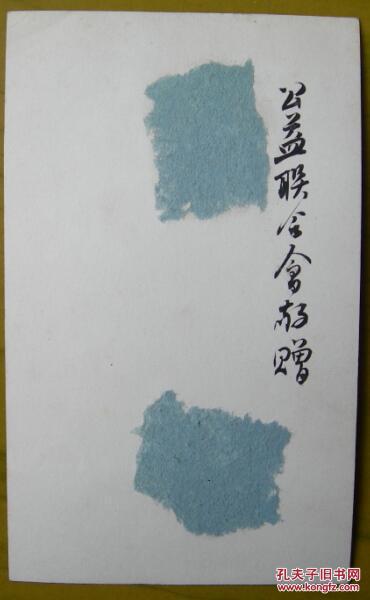 公益联合會敬赠
孔夫子旧书网
www.kongfz.com